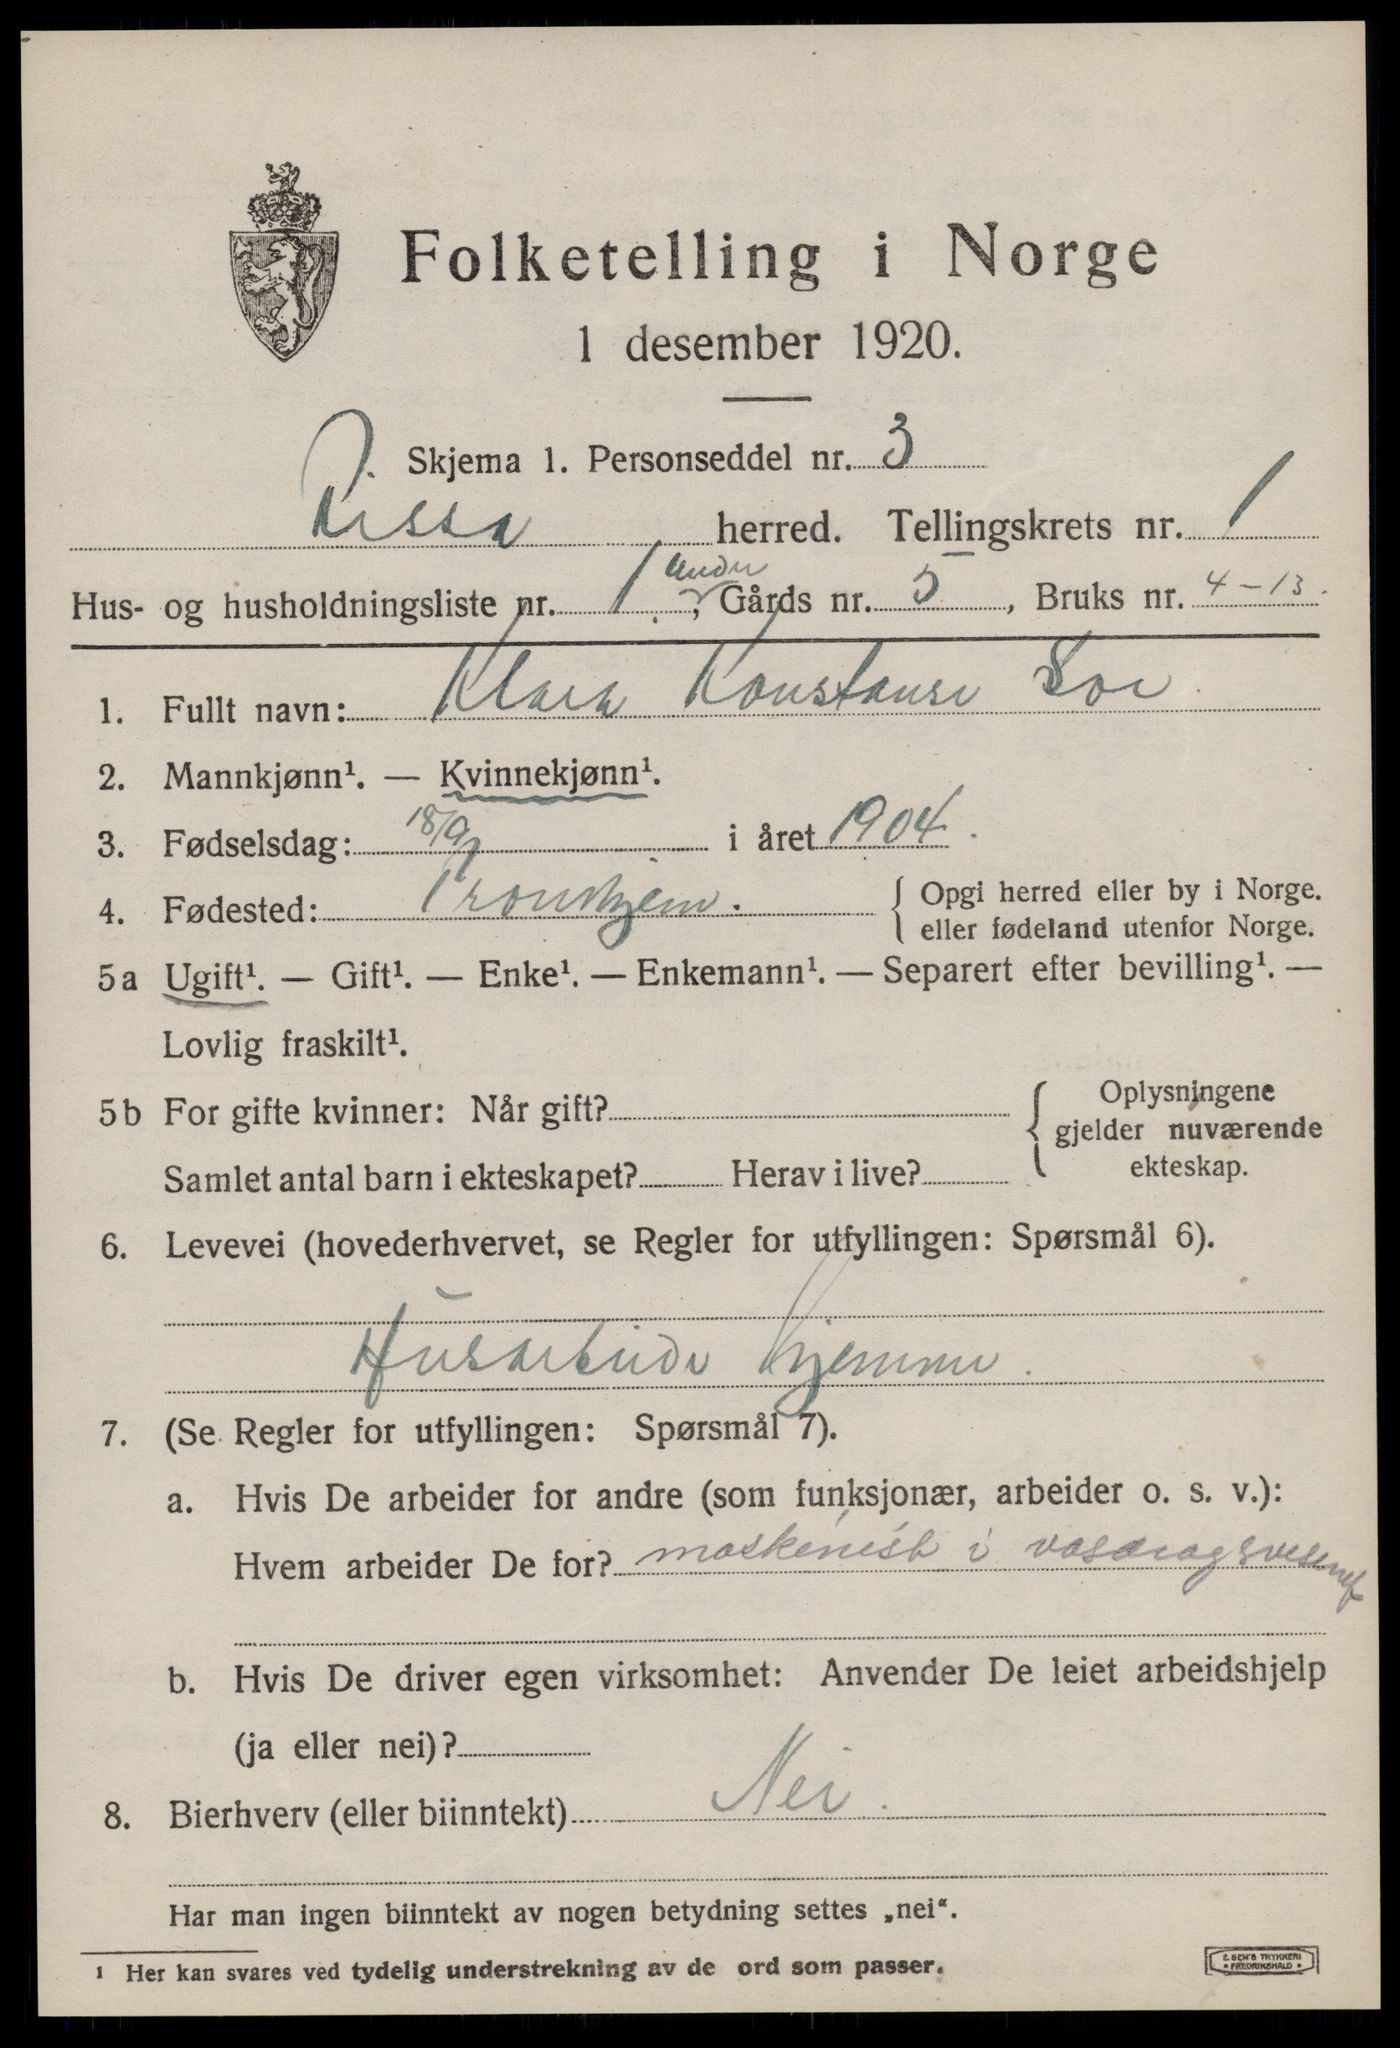 Folketelling i Norge
1 desember 1920.
Skjema 1. Personseddel nr. 3
Rissa herred. Tellingskrets nr. 1
Hus- og husholdningsliste nr. 1 , Gårds nr. 5 , Bruks nr. 4-13.
1. Fullt navn: Klara Konstanse
2. Mannkjønn¹. — Kvinnekjønn¹.
3. Fødselsdag: 18/9 i året 1904.
4. Fødested: Trondhjem. { Opgi herred eller by i Norge.
eller fødeland utenfor Norge.
5 a Ugift¹. — Gift¹. — Enke¹. — Enkemann¹. — Separert efter bevilling¹. —
Lovlig fraskilt¹.
5 b For gifte kvinner: Når gift? { Oplysningene
gjelder nuværende
Samlet antal barn i ekteskapet? Herav i live? ekteskap.
6. Levevei (hovederhvervet, se Regler for utfyllingen: Spørsmål 6).
Husarbeide hjemme.
7. (Se Regler for utfyllingen: Spørsmål 7).
a. Hvis De arbeider for andre (som funksjonær, arbeider o. s. v.):
Hvem arbeider De for? maskinist i vasdragsvesenet
b. Hvis De driver egen virksomhet: Anvender De leiet arbeidshjelp
(ja eller nei)?
8. Bierhverv (eller biinntekt) Nei.
Har man ingen biinntekt av nogen betydning settes „nei“.
¹ Her kan svares ved tydelig understrekning av de ord som passer.
E. SEM'S TRYKKERI
• FREDRIKSHALD •